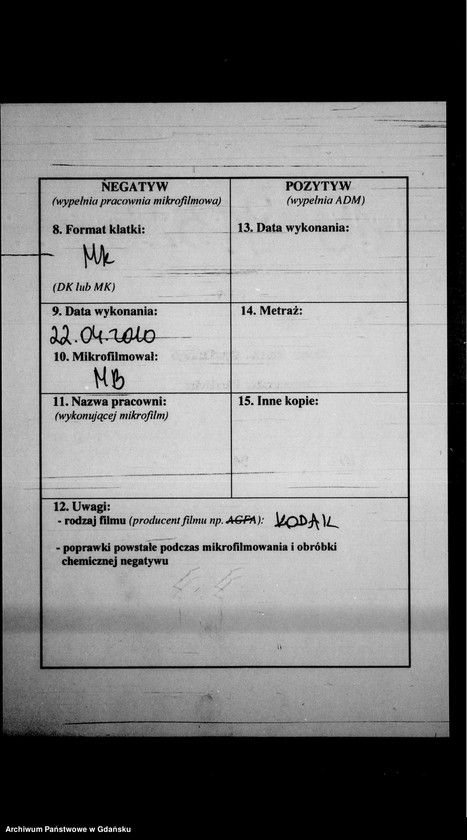 NEGATYW
(wypełnia pracownia mikrofilmowa)
8. Format klatki:
Mk
(DK lub MK)
POZYTYW
(wypełnia ADM)
13. Data wykonania:
9. Data wykonania:
22.04.2010
10. Mikrofilmował:
MB
14. Metraż:
11. Nazwa pracowni:
(wykonującej mikrofilm)
15. Inne kopie:
12. Uwagi:
- rodzaj filmu (producent filmu np. AGFA): KODAK
- poprawki powstałe podczas mikrofilmowania i obróbki
chemicznej negatywu
Archiwum Państwowe w Gdańsku